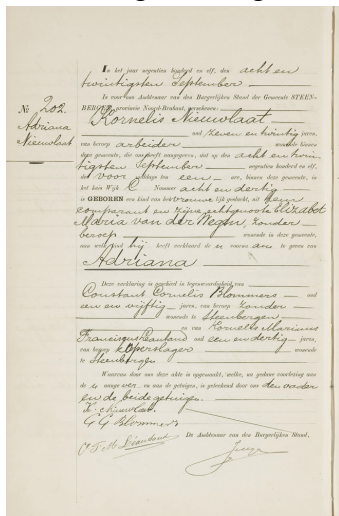 In het jaar negentien honderd en elf, den acht en
twintigsten September
is voor ons Ambtenaar van den Burgerlijken Stand der Gemeente STEEN-
BERGEN, provincie Noord-Brabant, verschenen:
No 202.
Adriana
Nieuwlaat
Kornelis Nieuwlaat
oud zeven en twintig jaren,
van beroep arbeider wonende binnen
deze gemeente, die ons heeft aangegeven, dat op den acht en twin-
tigsten September negentien honderd en elf,
des voor middags ten een ure, binnen deze gemeente, in
het huis Wijk C Nummer acht en dertig
is GEBOREN een kind van het vrouwelijk geslacht, uit hem
comparant en zijne echtgenoote Elizabet
Maria van der Wegen, zonder
beroep wonende in deze gemeente,
aan welk kind hij heeft verklaard de voornaam te geven van
Adriana
Deze verklaring is geschied in tegenwoordigheid van
Constant Cornelis Blommers oud
een en vijftig jaren, van beroep zonder
wonende te Steenbergen
en van Kornelis Marinus
Franciscus oud een en dertig jaren,
van beroep koperslager wonende
te Steenbergen
Waarvan door ons deze akte is opgemaakt, welke, na gedane voorlezing aan
de aangever en aan de getuigen, is geteekend door ons den vader
en de beide getuigen.
K. Nieuwlaat.
Blommers
De Ambtenaar van den Burgerlijken Stand,